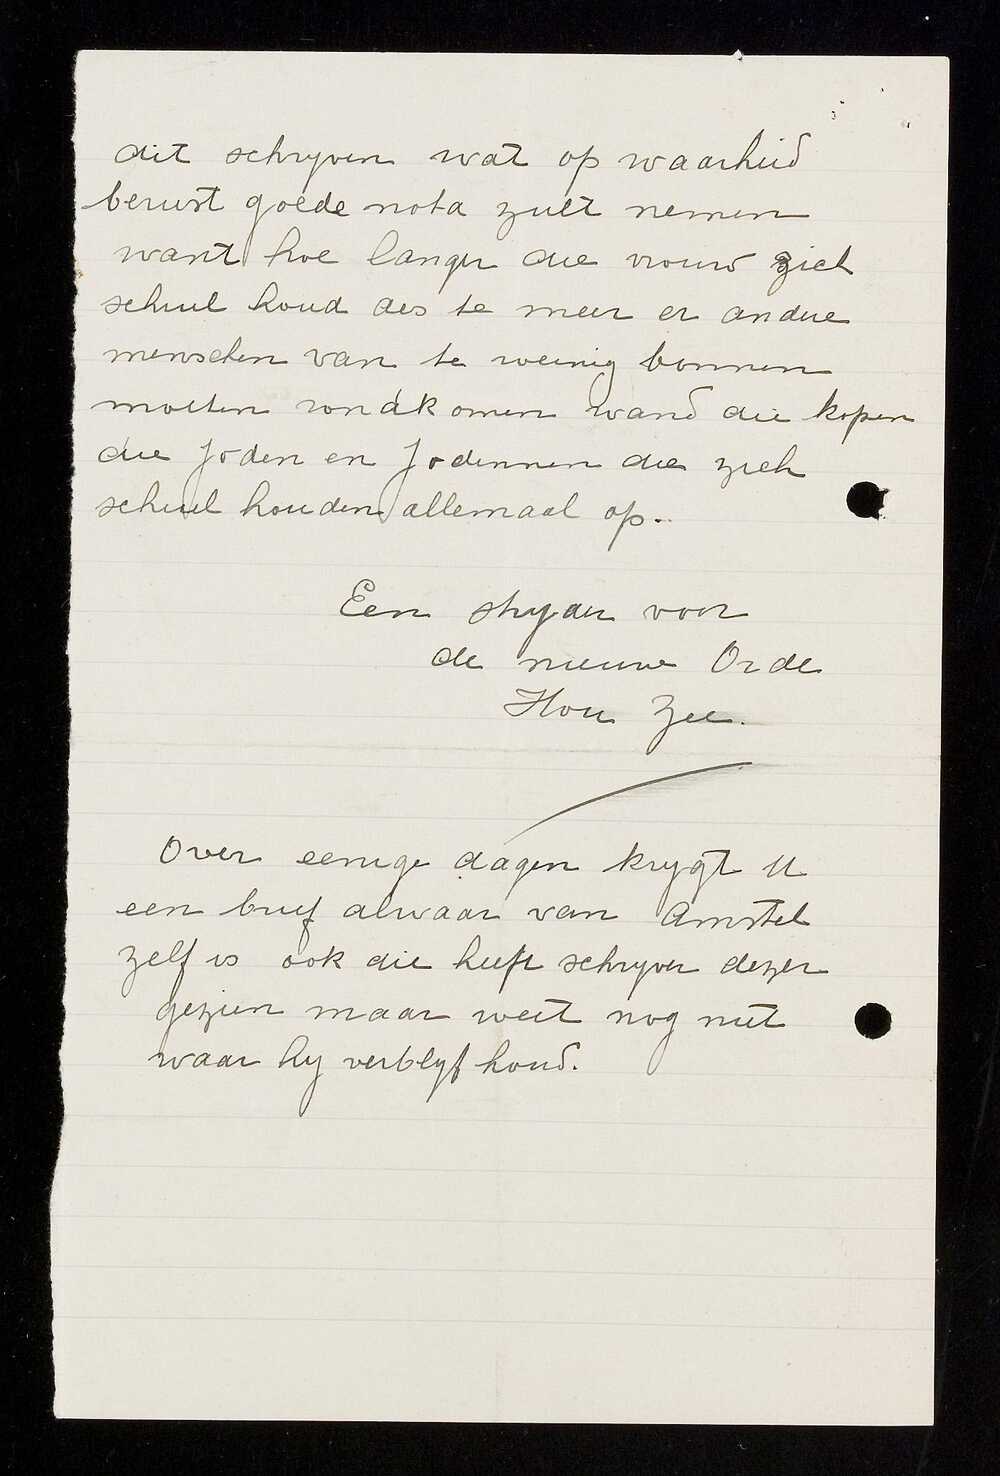 dit schryven wat op waarheid
berust goede nota zult nemen
want hoe langer die vrouw zich
schuil houd des te meer er andere
menschen van te weinig bonnen
moeten rondkomen wand die kopen
die Joden en Jodinnen die zich
schuil houden allemaal op.
Een stryder voor
de nieuwe Orde
Hou Zee.
Over eenige dagen krygt U
een brief alwaar van Amstel
zelf is ook die heeft schryver dezer
gezien maar weet nog niet
waar hy verblyf houd.